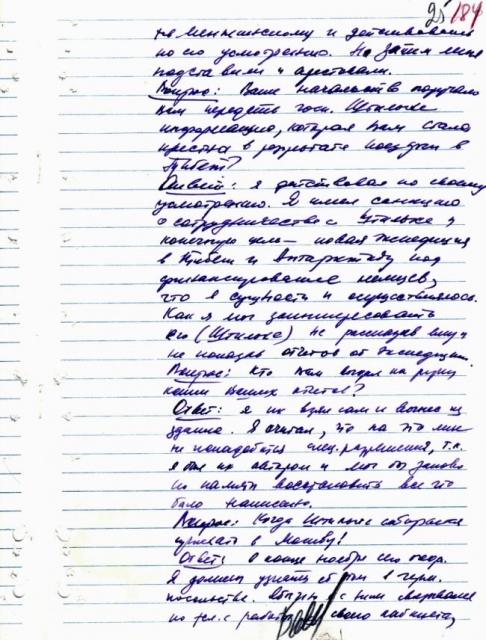 25/184
ся Менжинскому и действовали
по его усмотрению. Но затем меня
подставили и арестовали.
Вопрос: Ваше начальство поручало
Вам передать госп. Штильхе
информацию, которая Вам стала
известна в результате поездки в
Тибет?
Ответ: Я действовал по своему
усмотрению. Я имел санкцию
о сотрудничестве с Штильхе и
конечную цель – новая экспедиция
в Тибет и Антарктиду под
финансирование немцев,
что в сущности и осуществлялось.
Как я мог заинтересовать
его (Штильхе) не рассказав ему и
не показав отчетов от экспедиции.
Вопрос: Кто Вам выдал на руки
копии Ваших отчетов?
Ответ: я их взял сам и вынес из
здания. Я считал, что на это мне
не понадобится спец. разрешения, т.к.
я был их автором и мог бы заново
по памяти восстановить все что
было написано.
Вопрос: Когда Штильхе собирался
приехать в Москву?
Ответ: В конце ноября сего года.
Я должен узнать об этом в герм.
посольстве. с ним связывался
по тел. с своего кабинета,